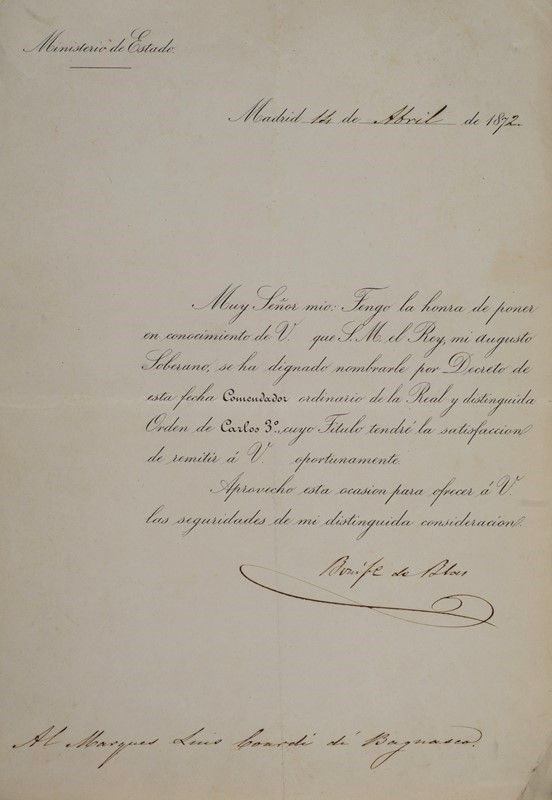 Ministerio de Estado.
Madrid 14 de Abril de 1872.
Muy Señor mio: Tengo la honra de poner
en conocimiento de V. que S. M. el Rey, mi augusto
Soberano, se ha dignado nombrarle por Decreto de
esta fecha Comendador ordinario de la Real y distinguida
Orden de Carlos 3º., cuyo Título tendré la satisfaccion
de remitir á V. oportunamente.
Aprovecho esta ocasion para ofrecer á V.
las seguridades de mi distinguida consideracion.
de Blas
Al Marques Luis di Bagnasco.